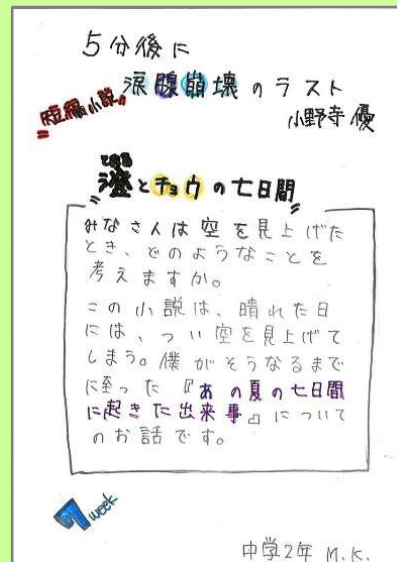 5分後に
涙腺崩壊のラスト
"短編小説"
小野寺 優
とおる
澄とチョウの七日間
みなさんは空を見上げた
とき、どのようなことを
考えますか。
この小説は、晴れた日
には、つい空を見上げて
しまう。僕がそうなるまで
に至った『あの夏の七日間
に起きた出来事』について
のお話です。
7 week
中学2年 M.K.